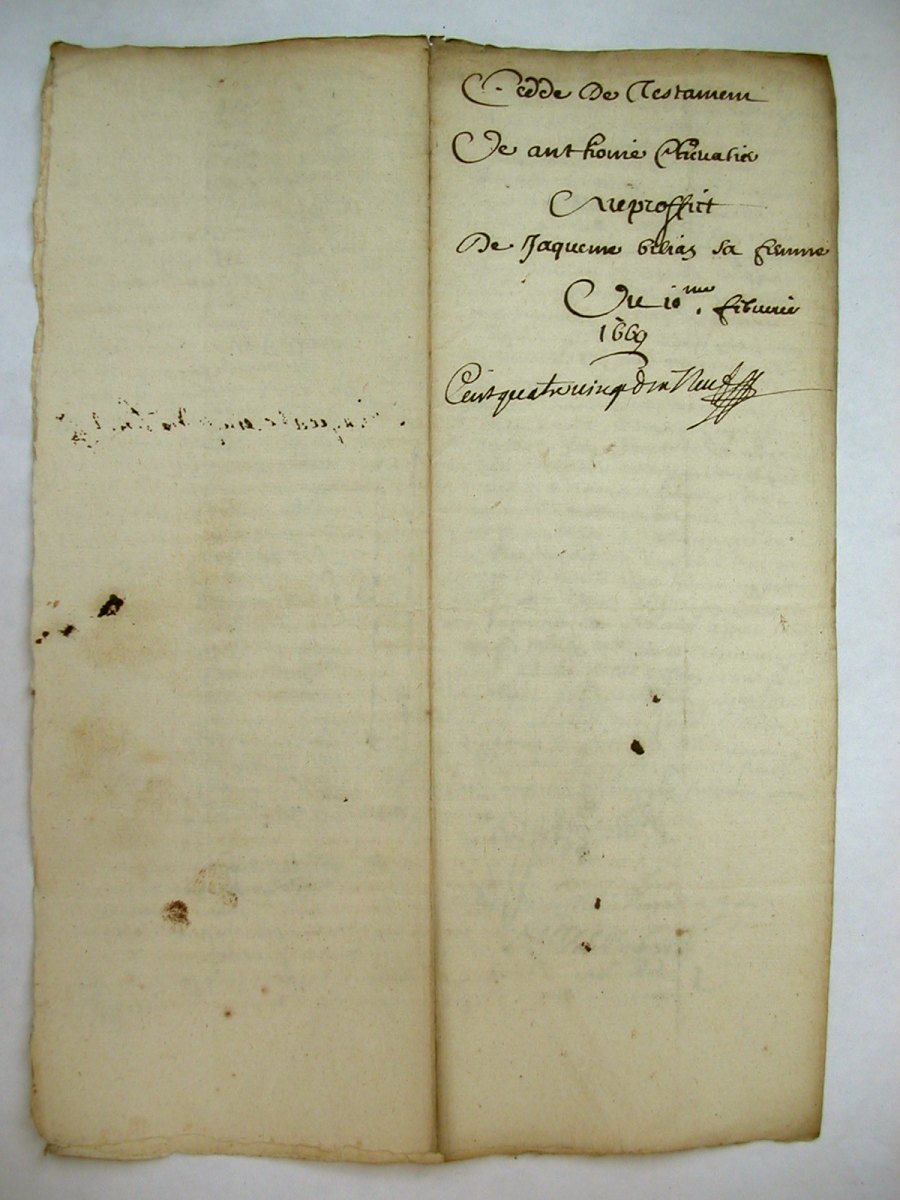 Cedde De Testament
De anthonie Chevalier
Au proffict
De Jaqueme belias sa femme
Du 10me. febvrier
1669
Cent quatre vingt dix Neuf